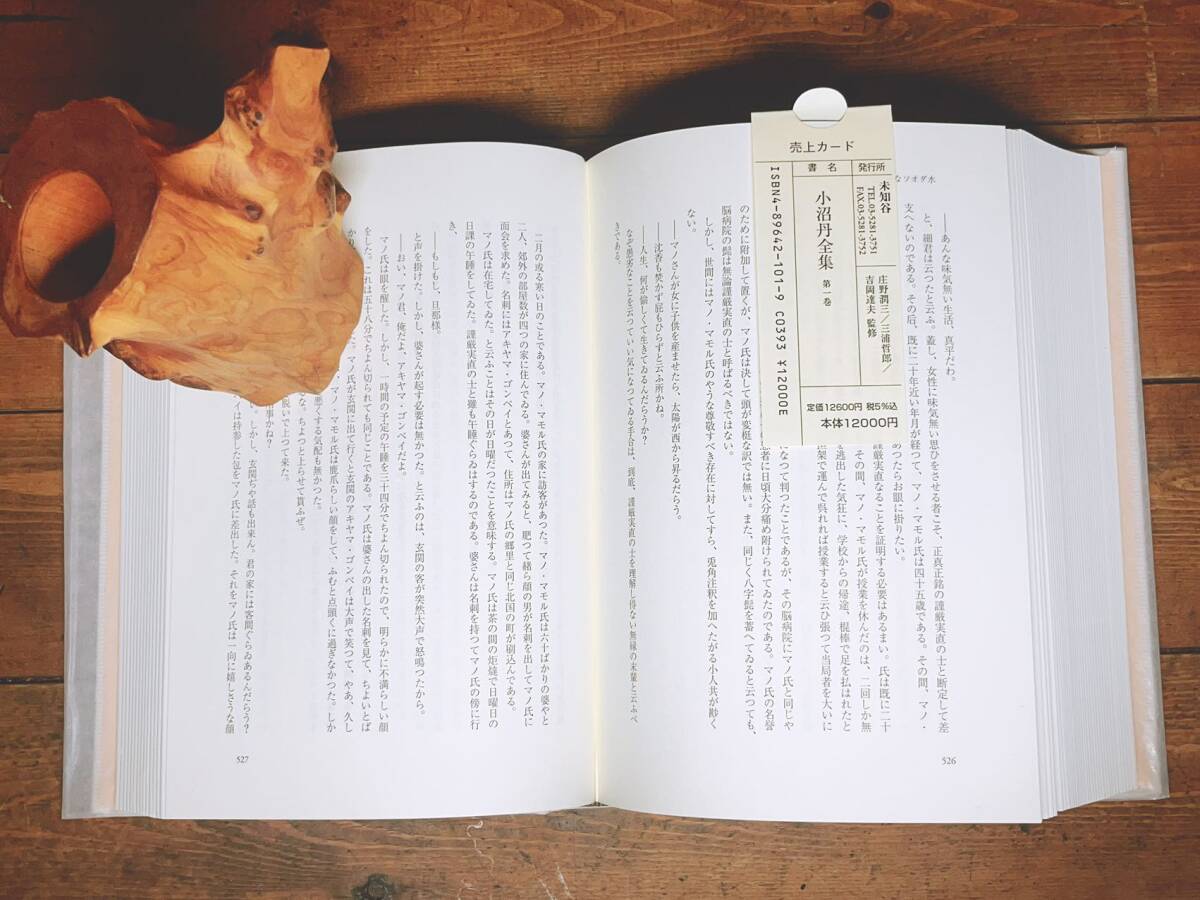 売上カード
書名
小沼丹全集 第一巻
発行所
未知谷
TEL.03-5281-3751
FAX.03-5281-3752
庄野潤三/三浦哲郎/
吉岡達夫 監修
ISBN4-89642-101-9 C0393 ¥12000E
定価12600円 税5%込
本体12000円
なソオダ水
――あんな味気無い生活、真平だわ。
と、細君は云つたと云ふ。蓋し、女性に味気無い思ひをさせる者こそ、正真正銘の謹厳実直の士と断定して差
支へないのである。その后、既に二十年近い年月が経つて、マノ・マモル氏は四十五歳である。その間、マノ・
あつたらお眼に掛りたい。
謹厳実直なることを証明する必要はあるまい。氏は既に二十
その間、マノ・マモル氏が授業を休んだのは、二回しか無
逃出した気狂に、学校からの帰途、棍棒で足を払はれたと
架で運んで呉れれば授業すると云ひ張つて当局者を大いに
なつて判つたことであるが、その脳病院にマノ氏と同じや
者に日頃大分痛め附けられてゐたのである。マノ氏の名誉
のために附加して置くが、マノ氏は決して頭が変梃な訳では無い。また、同じく八字髭を蓄へてゐると云つても、
脳病院の髭は無論謹厳実直の士と呼ばるべきではない。
しかし、世間にはマノ・マモル氏のやうな尊敬すべき存在に対してすら、兎角注釈を加へたがる小人共が尠く
ない。
――マノさんが女に子供を産ませたら、太陽が西から昇るだらう。
――沈香も焚かず屁もひらずと云ふ所かね。
――人生、何が愉しくて生きてゐるんだらうか?
なぞ愚劣なことを云つていい気になつてゐる手合は、到底、謹厳実直の士を理解し得ない無縁の末輩と云ふべ
きである。
526
二月の或る寒い日のことである。マノ・マモル氏の家に訪客があつた。マノ・マモル氏は六十ばかりの婆やと
二人、郊外の部屋数が四つの家に住んでゐる。婆さんが出てみると、肥つて赭ら顔の男が名刺を出してマノ氏に
面会を求めた。名刺にはアキヤマ・ゴンペイとあつて、住所はマノ氏の郷里と同じ北国の町が刷込んである。
マノ氏は在宅してゐた。と云ふことはその日が日曜だつたことを意味する。マノ氏は茶の間の炬燵で日曜日の
日課の午睡をしてゐた。謹厳実直の士と雖も午睡ぐらゐはするのである。婆さんは名刺を持つてマノ氏の傍に行
き、
――もしもし、旦那様。
と声を掛けた。しかし、婆さんが起す必要は無かつた。と云ふのは、玄関の客が突然大声で怒鳴つたから。
――おい、マノ君、俺だよ、アキヤマ・ゴンペイだよ。
マノ氏は眼を醒した。しかし、一時間の予定の午睡を三十四分でちよん切られたので、明らかに不満らしい顔
をした。これは五十八分でちよん切られても同じことである。マノ氏は婆さんの出した名刺を見て、ちよいとば
マノ氏が玄関に出て行くと玄関のアキヤマ・ゴンペイは大声で笑つて、やあ、久し
マノ・マモル氏は鹿爪らしい顔をして、ふむと点頭くに過ぎなかつた。しか
悪くする気配も無かつた。
な。ちよつと上らせて貰ふぜ。
脱いで上つて来た。
用事かね?
しかし、玄関ぢや話も出来ん。君の家には客間ぐらゐあるんだらう?
イは持参した包をマノ氏に差出した。それをマノ氏は一向に嬉しさうな顔
527